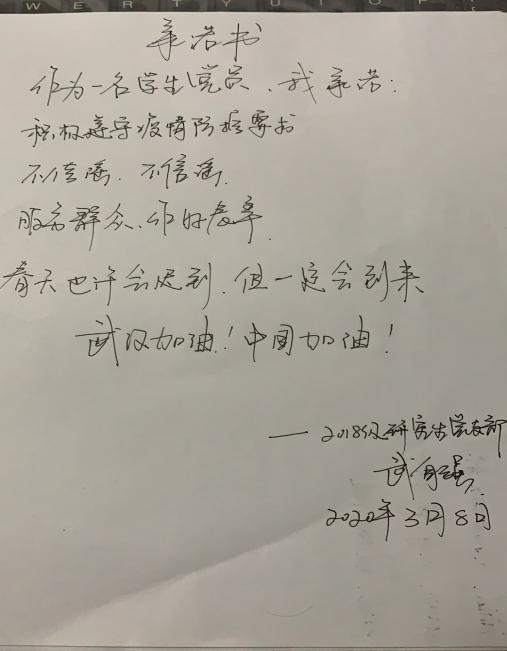 W E R T Y U I O P
承诺书
作为一名学生党员、我承诺:
积极遵守疫情防控要求
不传谣、不信谣.
服务群众、作好表率.
春天也许会迟到.但一定会到来
武汉加油!中国加油!
— 2018级研究生党支部
武
2020年3月8日